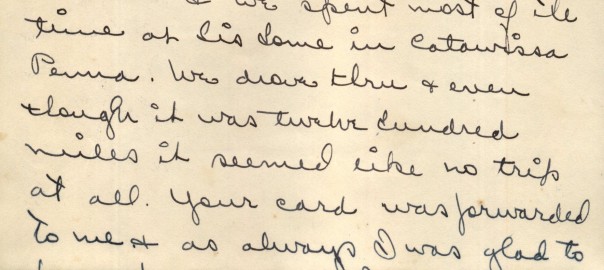 & we spent most of the
time at his home in Catawissa
Penna. We drove thru & even
though it was twelve hundred
miles it seemed like no trip
at all. Your card was forwarded
to me & as always I was glad to